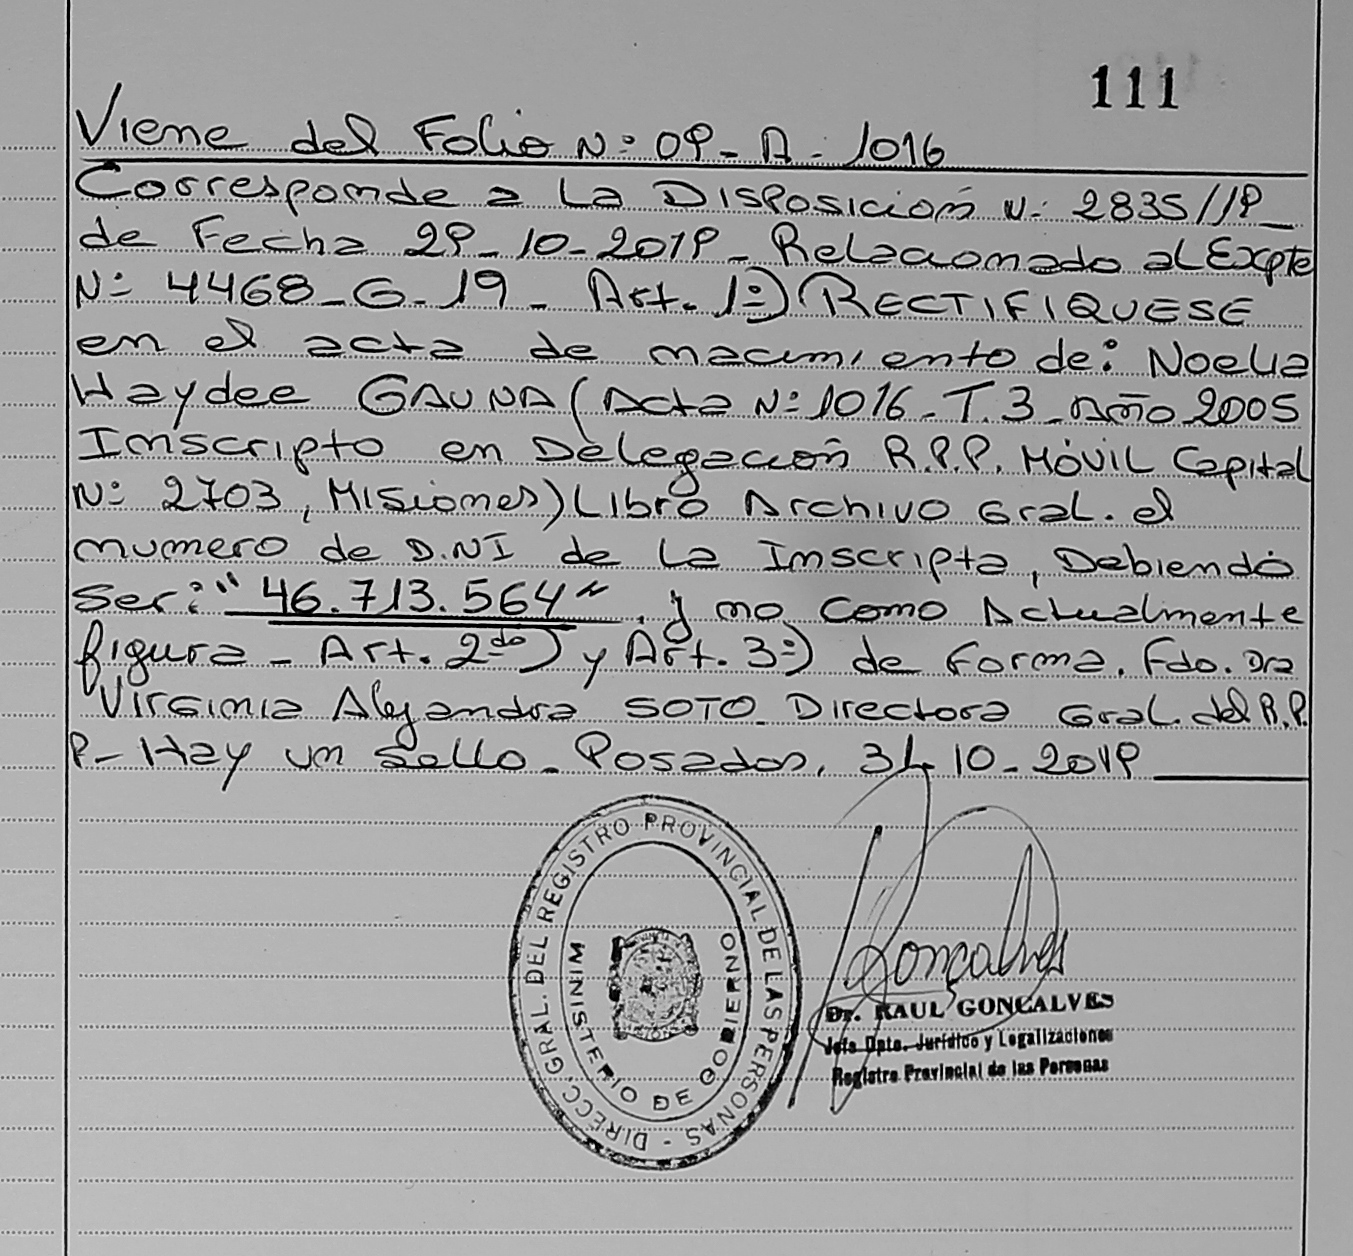 111
Viene del Folio N: 09 - A - 1016
Corresponde a La Disposición N: 2835//19 -
de Fecha 29-10-2019 - Relacionado al Expte
N: 4468-G-19 - Art. 1º) RECTIFIQUESE
en el acta de nacimiento de: Noelia
Haydee GAUNA (Acta N: 1016 - T. 3 - Año 2005
Inscripto en Delegación R.P.P. MÓVIL Capital
N: 2703, Misiones) Libro Archivo Gral. el
numero de D.NI de la Inscripta, Debiendo
Ser: "46.713.564" . y no como Actualmente
figura - Art. 2do) y Art. 3º) de Forma. Fdo. Dra
Virginia Alejandra SOTO - Directora Gral. del R.P.
P - Hay un Sello - Posadas, 31-10-2019
DIRECC. GRAL. DEL REGISTRO PROVINCIAL DE LAS PERSONAS -
MINISTERIO DE GOBIERNO
Gonçalves
Dr. RAUL GONÇALVES
Jefe Dpto. Jurídico y Legalizaciones
Registro Provincial de las Personas